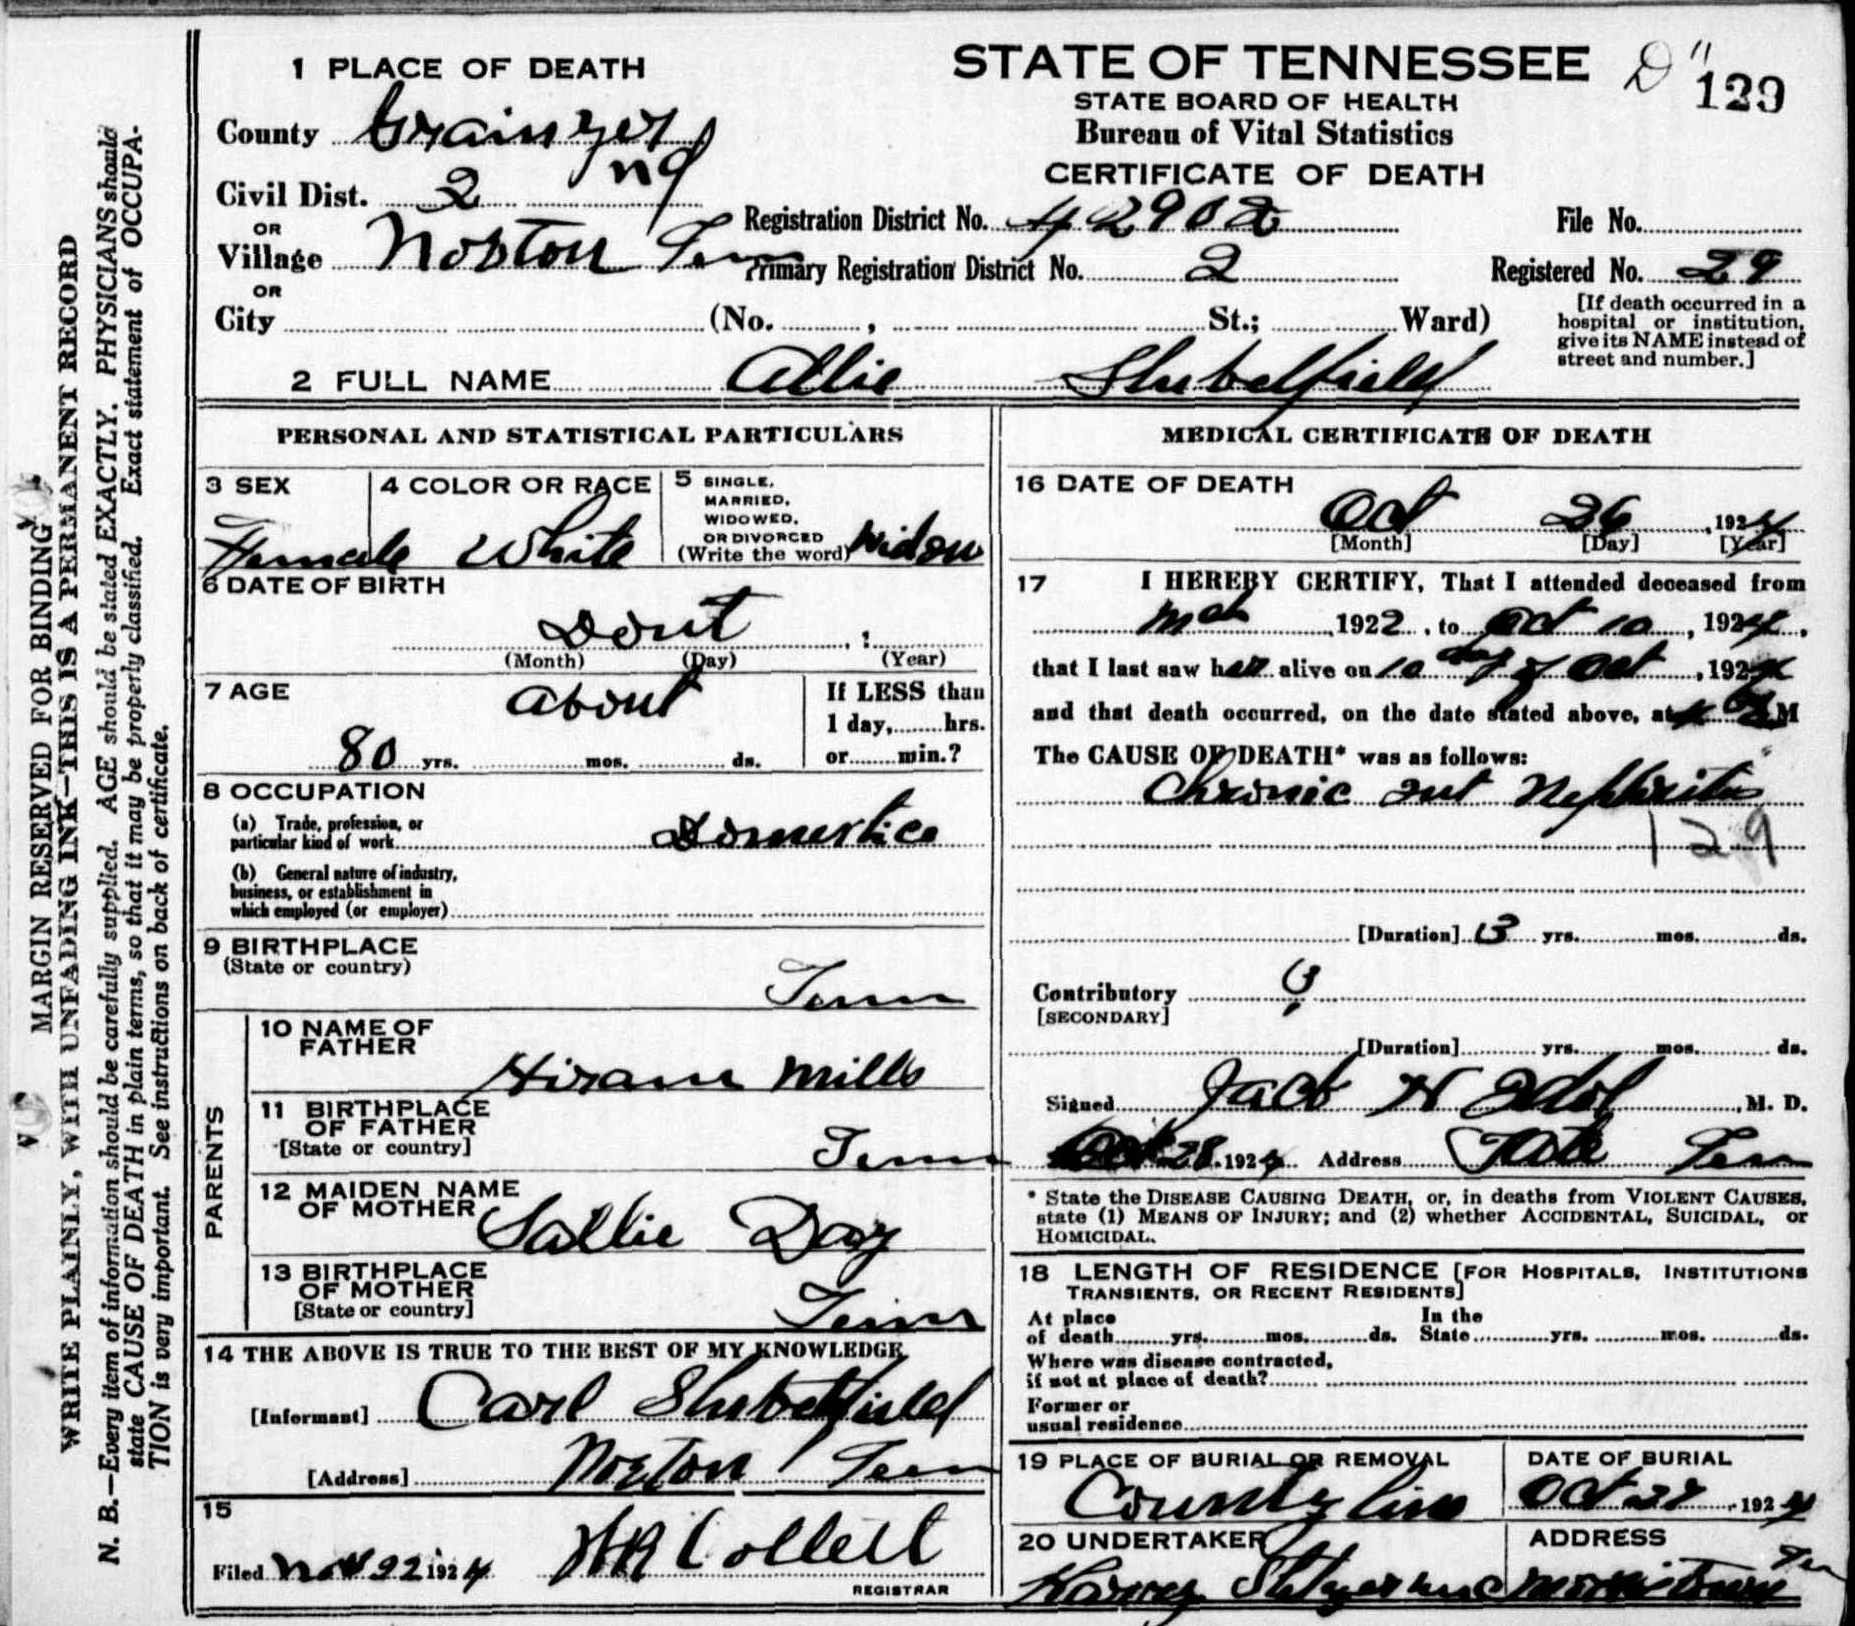 1 PLACE OF DEATH
STATE OF TENNESSEE
129
STATE BOARD OF HEALTH
Bureau of Vital Statistics
CERTIFICATE OF DEATH
County Grainger
Civil Dist. 2 nd
OR
Village Noeton Ten
OR
City (No. , St.; Ward)
Registration District No. 42902
Primary Registration District No. 2
File No.
Registered No. 29
[If death occurred in a
hospital or institution,
give its NAME instead of
street and number.]
2 FULL NAME Allie Stubelfield
PERSONAL AND STATISTICAL PARTICULARS
3 SEX
Female
4 COLOR OR RACE
White
5 SINGLE,
MARRIED,
WIDOWED,
OR DIVORCED
(Write the word) Widow
6 DATE OF BIRTH
Dont
(Month) (Day) (Year)
7 AGE
About
80 yrs. mos. ds.
If LESS than
1 day, hrs.
or min.?
8 OCCUPATION
(a) Trade, profession, or
particular kind of work Domestice
(b) General nature of industry,
business, or establishment in
which employed (or employer)
9 BIRTHPLACE
(State or country)
Tenn
PARENTS
10 NAME OF
FATHER
Hiram Mills
11 BIRTHPLACE
OF FATHER
[State or country]
Tenn
12 MAIDEN NAME
OF MOTHER
Sallie Day
13 BIRTHPLACE
OF MOTHER
[State or country]
Tenn
14 THE ABOVE IS TRUE TO THE BEST OF MY KNOWLEDGE
[Informant] Carl Stubelfield
[Address] Noeton Tenn
15
Filed Nov 22 1924 Collett
REGISTRAR
MEDICAL CERTIFICATE OF DEATH
16 DATE OF DEATH
Oct 26, 1924
[Month] [Day] [Year]
17 I HEREBY CERTIFY, That I attended deceased from
Mch 1922, to Oct 10, 1924,
that I last saw her alive on 10 day of Oct, 1924
and that death occurred, on the date stated above, at M
The CAUSE OF DEATH* was as follows:
Chronic Int Nephritis
129
[Duration] 3 yrs. mos. ds.
Contributory
[SECONDARY]
[Duration] yrs. mos. ds.
Signed Jacob H Idol, M. D.
Oct 28, 1924 Address Tate Tenn
* State the DISEASE CAUSING DEATH, or, in deaths from VIOLENT CAUSES,
state (1) MEANS OF INJURY; and (2) whether ACCIDENTAL, SUICIDAL, or
HOMICIDAL.
18 LENGTH OF RESIDENCE [FOR HOSPITALS, INSTITUTIONS
TRANSIENTS, OR RECENT RESIDENTS]
At place
of death yrs. mos. ds.
In the
State yrs. mos. ds.
Where was disease contracted,
if not at place of death?
Former or
usual residence
19 PLACE OF BURIAL OR REMOVAL
County line
DATE OF BURIAL
Oct 27, 1924
20 UNDERTAKER
ADDRESS
Morristown Ten
MARGIN RESERVED FOR BINDING
WRITE PLAINLY, WITH UNFADING INK—THIS IS A PERMANENT RECORD
N. B.—Every item of information should be carefully supplied. AGE should be stated EXACTLY. PHYSICIANS should
state CAUSE OF DEATH in plain terms, so that it may be properly classified. Exact statement of OCCUPA-
TION is very important. See instructions on back of certificate.